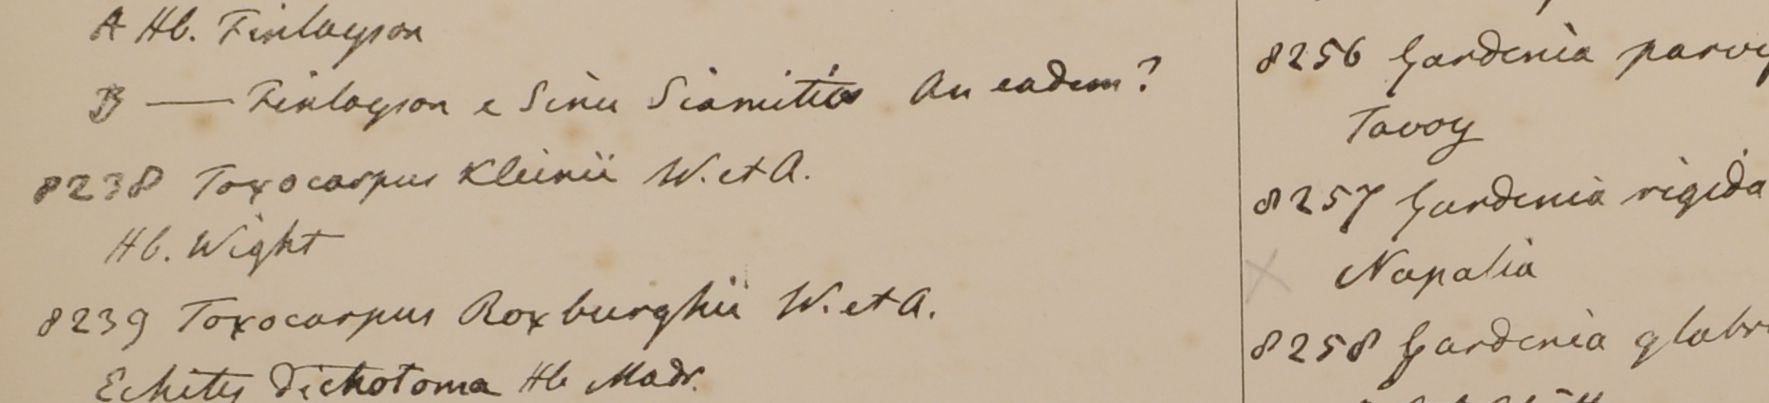 A Hb. Finlayson
B — Finlayson e Sinu Siamitio An eadem?
8238 Toxocarpus Kleinii W. et A.
Hb. Wight
8239 Toxocarpus Roxburghii W. et A.
Echites dichotoma Hb Madr.
8256 Gardenia
Tavoy
8257 Gardenia rigida
Napalia
8258 Gardenia glabr